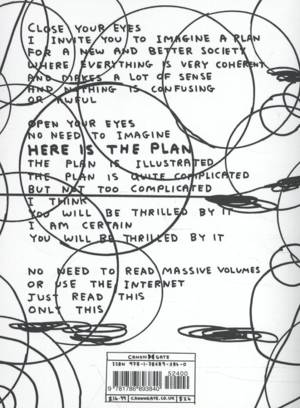 CLOSE YOUR EYES
I INVITE YOU TO IMAGINE A PLAN
FOR A NEW AND BETTER SOCIETY
WHERE EVERYTHING IS VERY COHERENT
AND MAKES A LOT OF SENSE
AND NOTHING IS CONFUSING
OR AWFUL
OPEN YOUR EYES
NO NEED TO IMAGINE
HERE IS THE PLAN
THE PLAN IS ILLUSTRATED
THE PLAN IS QUITE COMPLICATED
BUT NOT TOO COMPLICATED
I THINK
YOU WILL BE THRILLED BY IT
I AM CERTAIN
YOU WILL BE THRILLED BY IT
NO NEED TO READ MASSIVE VOLUMES
OR USE THE INTERNET
JUST READ THIS
ONLY THIS
CANONGATE
ISBN 978-1-78689-384-0
52400
9 781786 893840
£16.99 CANONGATE.CO.UK $24